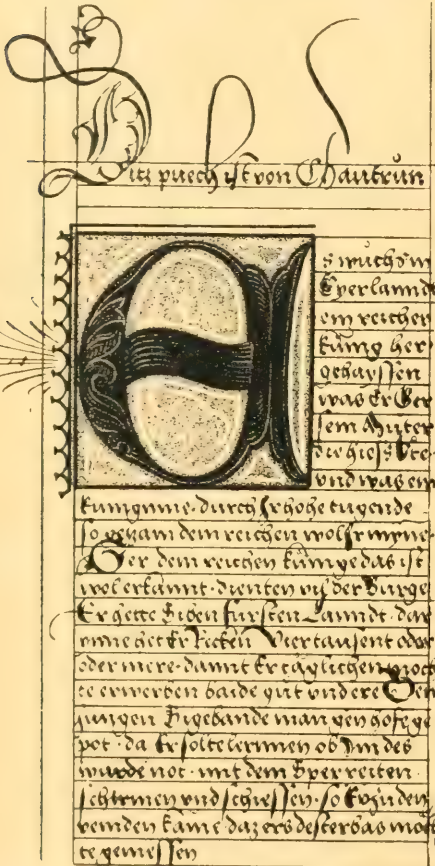 Ditz puech ist von Chautrůn
Es wuchs in
Eyerlannde
ein reicher
kůnig her
gehayssen
was Er Ger
sein Můter
die hiess Vte
vnd was ein
kuniginne. durch Ir hohe tugende
so gezam dem reichen wol Ir mynne.
Ger dem reichen kunige das ist
wol erkannt. dienten vil der Burge
Er hette Siben Fursten Lanndt. dar
ynne het Er Recken Viertausent oder
oder mere. damit Er täglichen moch
te erwerben baide gut vnd ere Dem
jungen Sigebande man gen hofe ge
pot. da Er solte lernnen ob Im des
wurde not. mit dem Sper reiten.
schirmen vnd schiessen. so Er zu den
veinden käme daz ers dester bas moch
te geniessen